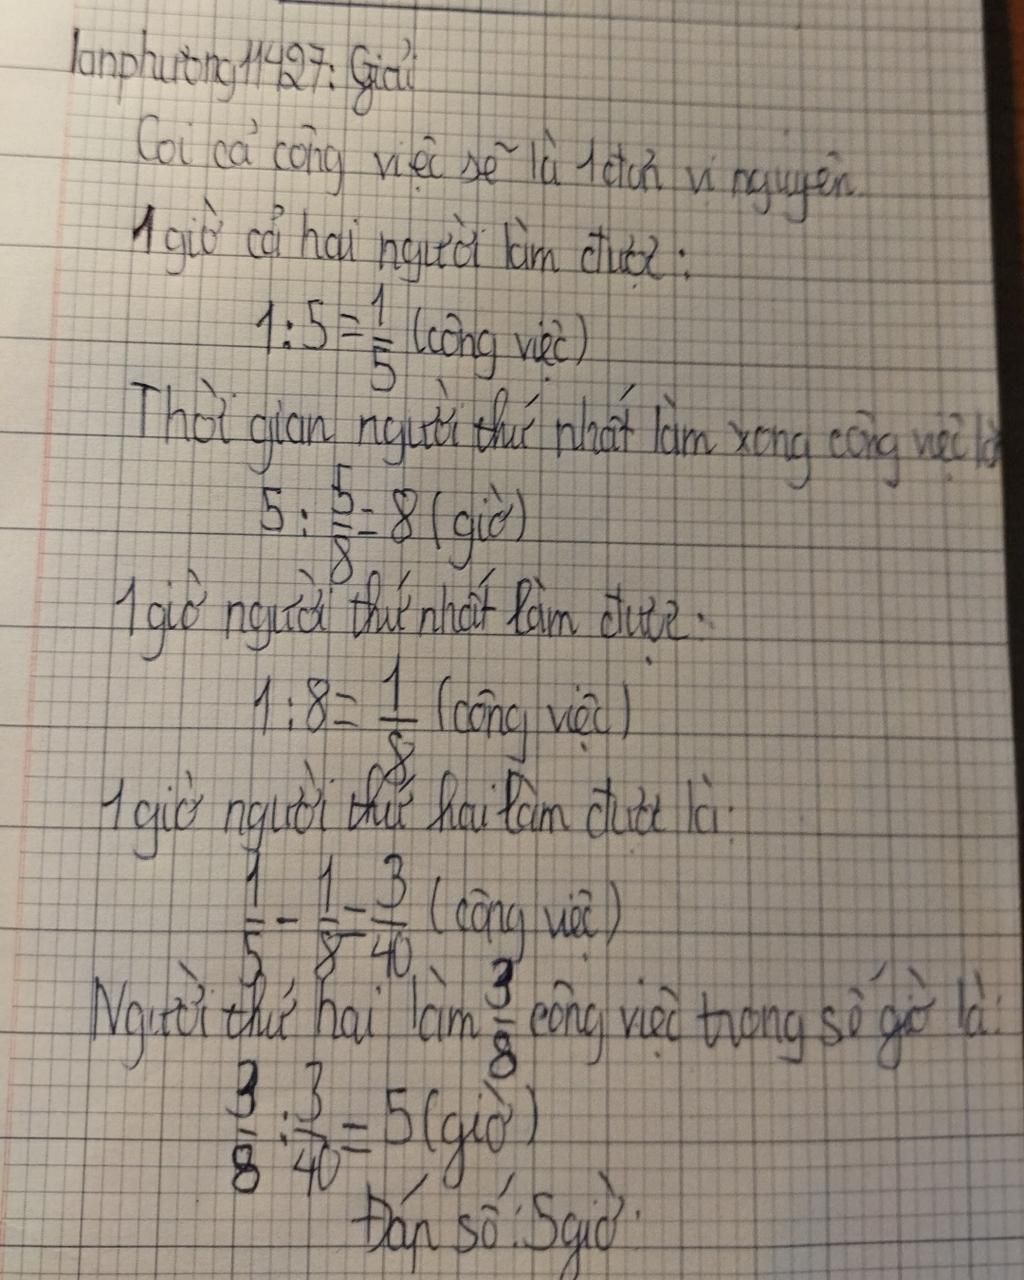 lanphương11427: Giải
Coi cả công việc sẽ là 1 đơn vị nguyên.
1 giờ cả hai người làm được:
1 : 5 = 1/5 (công việc)
Thời gian người thứ nhất làm xong công việc là
5 : 5/8 = 8 (giờ)
1 giờ người thứ nhất làm được:
1 : 8 = 1/8 (công việc)
1 giờ người thứ hai làm được là:
1/5 - 1/8 = 3/40 (công việc)
Người thứ hai làm 3/8 công việc trong số giờ là:
3/8 : 3/40 = 5 (giờ)
Đáp số: 5 giờ.